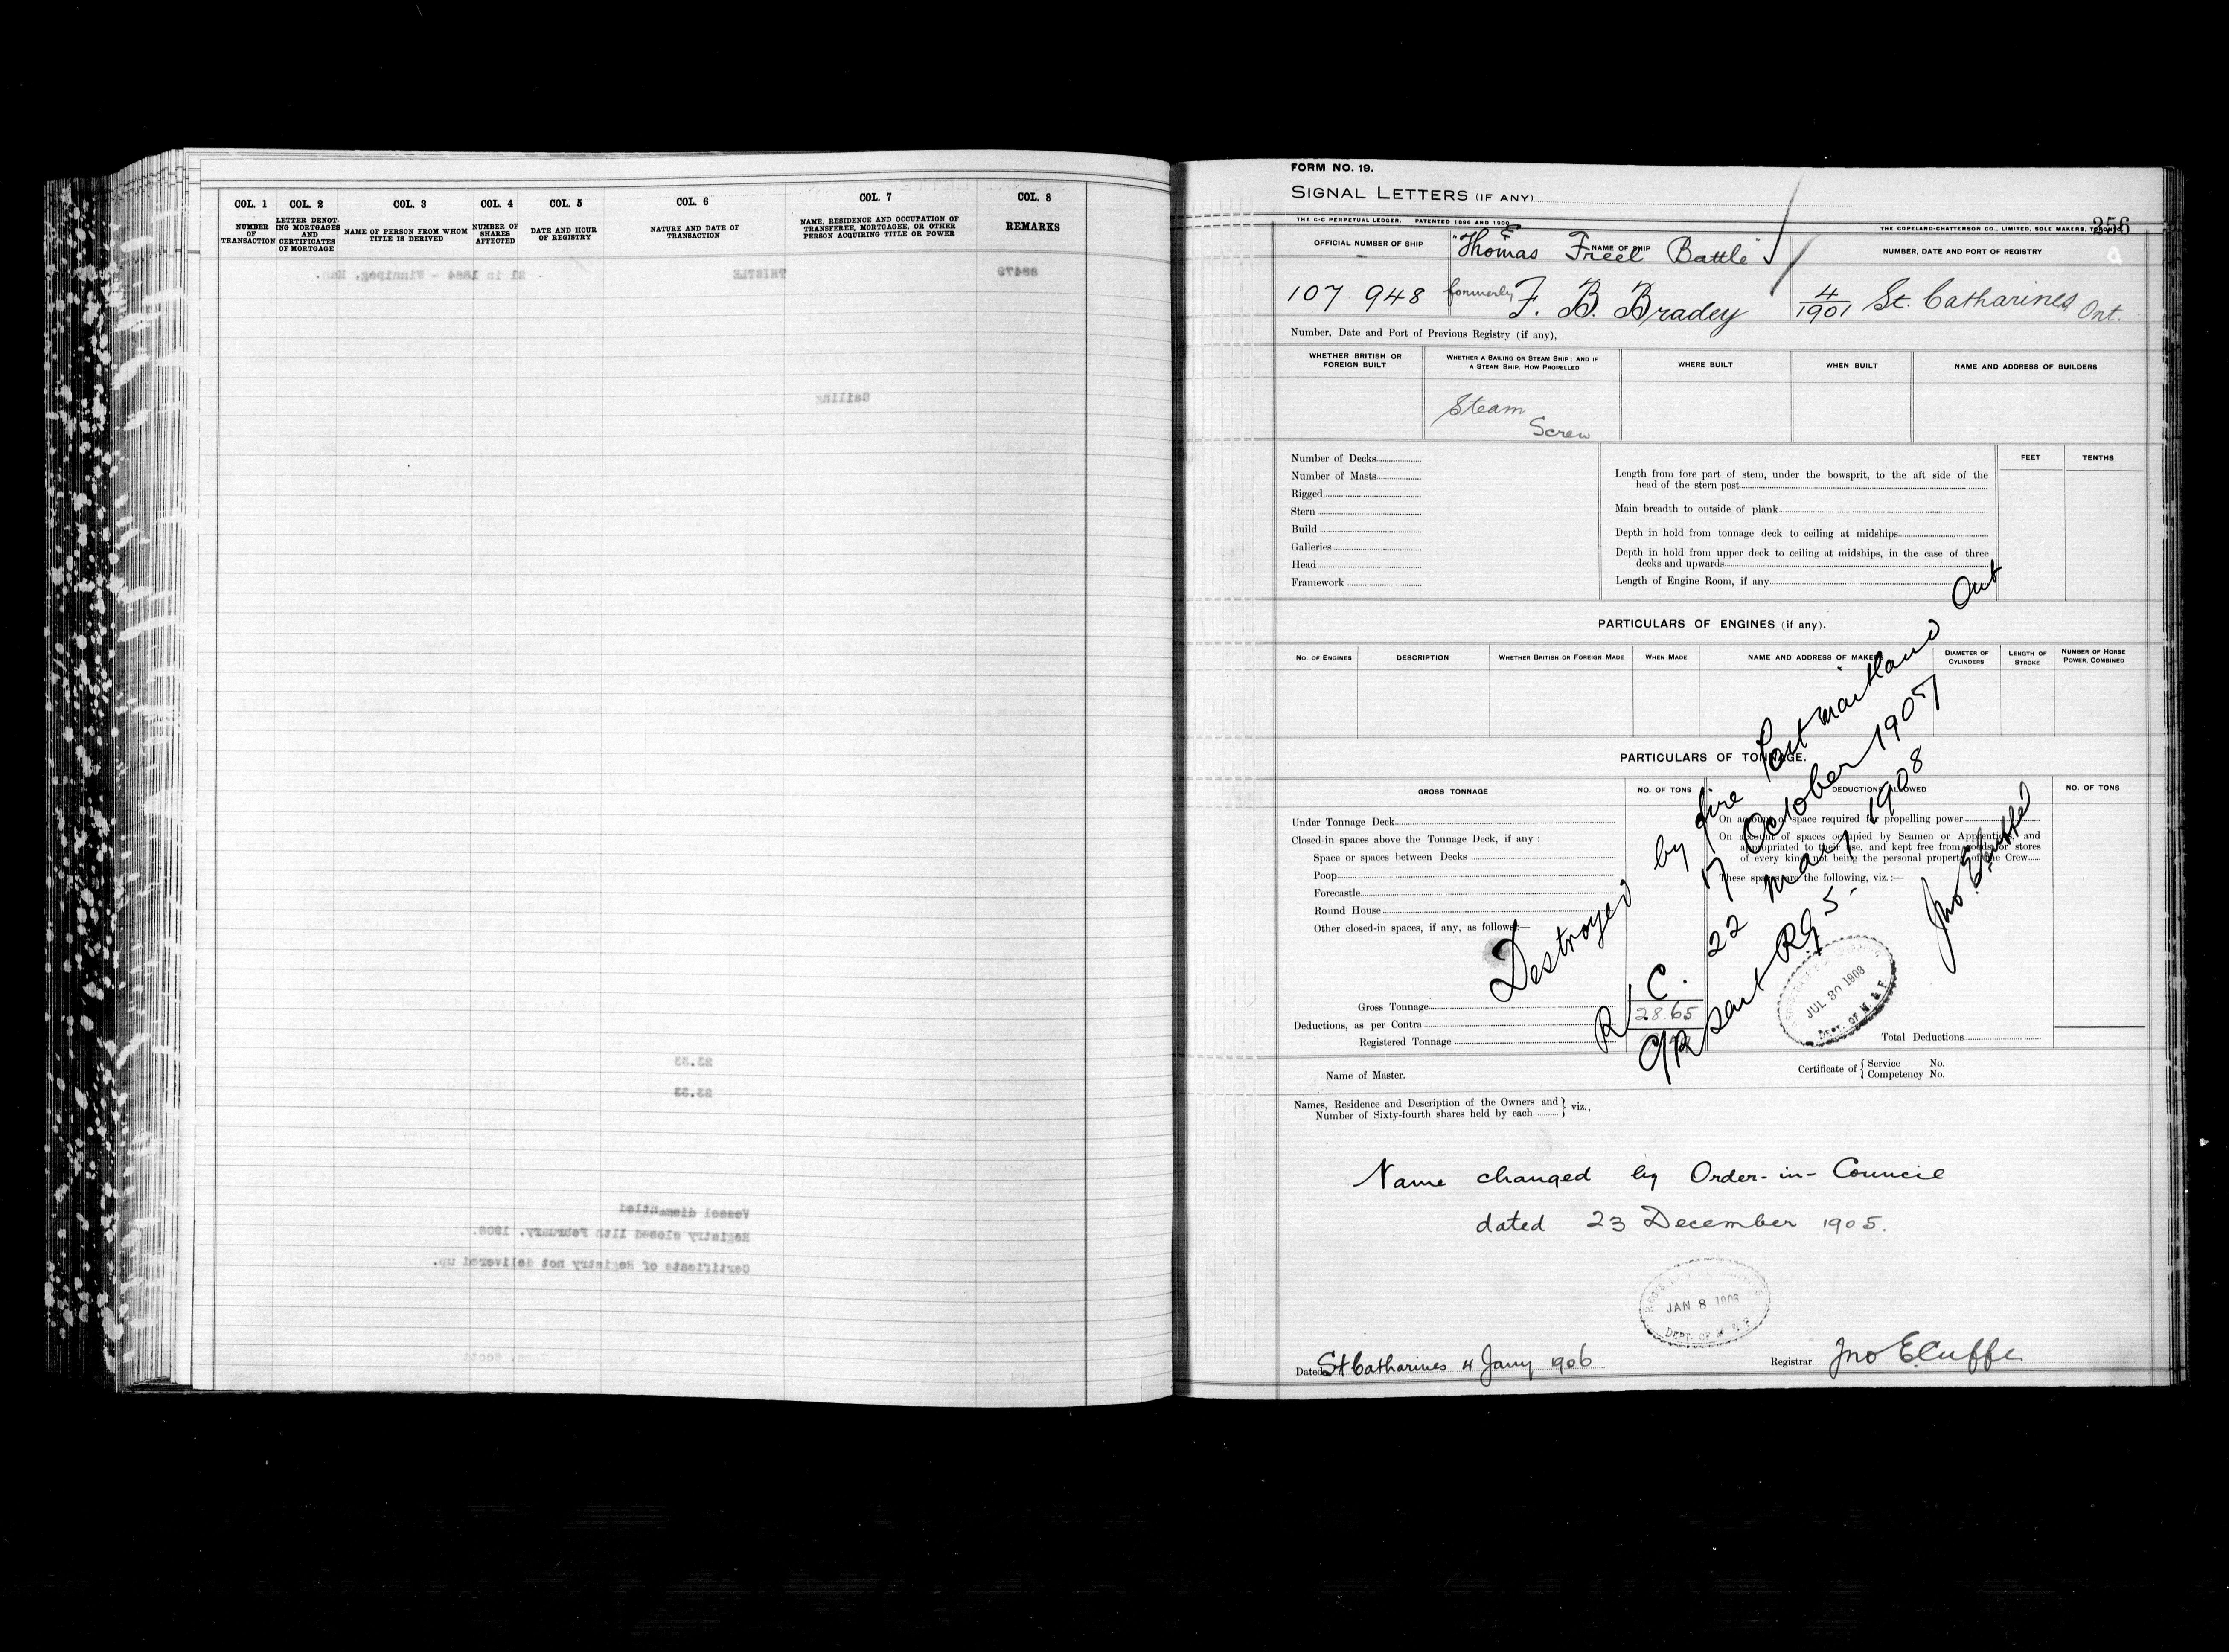 COL. 1 COL. 2 COL. 3 COL. 4 COL. 5 COL. 6 COL. 7 COL. 8
NUMBER OF TRANSACTION
LETTER DENOTING MORTGAGES AND CERTIFICATES OF MORTGAGE
NAME OF PERSON FROM WHOM TITLE IS DERIVED
NUMBER OF SHARES AFFECTED
DATE AND HOUR OF REGISTRY
NATURE AND DATE OF TRANSACTION
NAME, RESIDENCE AND OCCUPATION OF TRANSFEREE, MORTGAGEE, OR OTHER PERSON ACQUIRING TITLE OR POWER
REMARKS
88479 THISTLE 21 in 1884 - Winnipeg, Man.
Sailing
Vessel dismantled
Registry closed 11th February, 1908.
Certificate of Registry not delivered up.
FORM NO. 19.
SIGNAL LETTERS (IF ANY)
THE C-C PERPETUAL LEDGER. PATENTED 1896 AND 1900
THE COPELAND-CHATTERSON CO., LIMITED, SOLE MAKERS, TORONTO
256
OFFICIAL NUMBER OF SHIP
NAME OF SHIP
NUMBER, DATE AND PORT OF REGISTRY
"Thomas Freel Battle"
107 948 formerly F. B. Bradey 4/1901 St. Catharines Ont.
Number, Date and Port of Previous Registry (if any),
WHETHER BRITISH OR FOREIGN BUILT
WHETHER A SAILING OR STEAM SHIP; AND IF A STEAM SHIP, HOW PROPELLED
WHERE BUILT
WHEN BUILT
NAME AND ADDRESS OF BUILDERS
Steam
Screw
Number of Decks
Number of Masts
Rigged
Stern
Build
Galleries
Head
Framework
FEET TENTHS
Length from fore part of stem, under the bowsprit, to the aft side of the
head of the stern post
Main breadth to outside of plank
Depth in hold from tonnage deck to ceiling at midships
Depth in hold from upper deck to ceiling at midships, in the case of three
decks and upwards
Length of Engine Room, if any
PARTICULARS OF ENGINES (if any).
NO. OF ENGINES
DESCRIPTION
WHETHER BRITISH OR FOREIGN MADE
WHEN MADE
NAME AND ADDRESS OF MAKERS
DIAMETER OF CYLINDERS
LENGTH OF STROKE
NUMBER OF HORSE POWER, COMBINED
PARTICULARS OF TONNAGE.
GROSS TONNAGE
NO. OF TONS
DEDUCTIONS ALLOWED
NO. OF TONS
Under Tonnage Deck
Closed-in spaces above the Tonnage Deck, if any :
Space or spaces between Decks
Poop
Forecastle
Round House
Other closed-in spaces, if any, as follows:—
Gross Tonnage
Deductions, as per Contra 28.65
Registered Tonnage
On account of space required for propelling power
On account of spaces occupied by Seamen or Apprentices, and
appropriated to their use, and kept free from goods or stores
of every kind, not being the personal property of the Crew
These spaces are the following, viz.:—
Total Deductions
Destroyed by fire Port maitland Ont
17 October 1907
R C. 22 May 1908
Jno E Cuffe
JUL 30 1908
DEPT. OF M. & F.
Name of Master.
Certificate of { Service No.
Competency No.
Names, Residence and Description of the Owners and } viz.,
Number of Sixty-fourth shares held by each
Name changed by Order-in-Council
dated 23 December 1905.
JAN 8 1906
DEPT. OF M. & F.
Dated St Catharines 4 Jany 1906
Registrar Jno E Cuffe